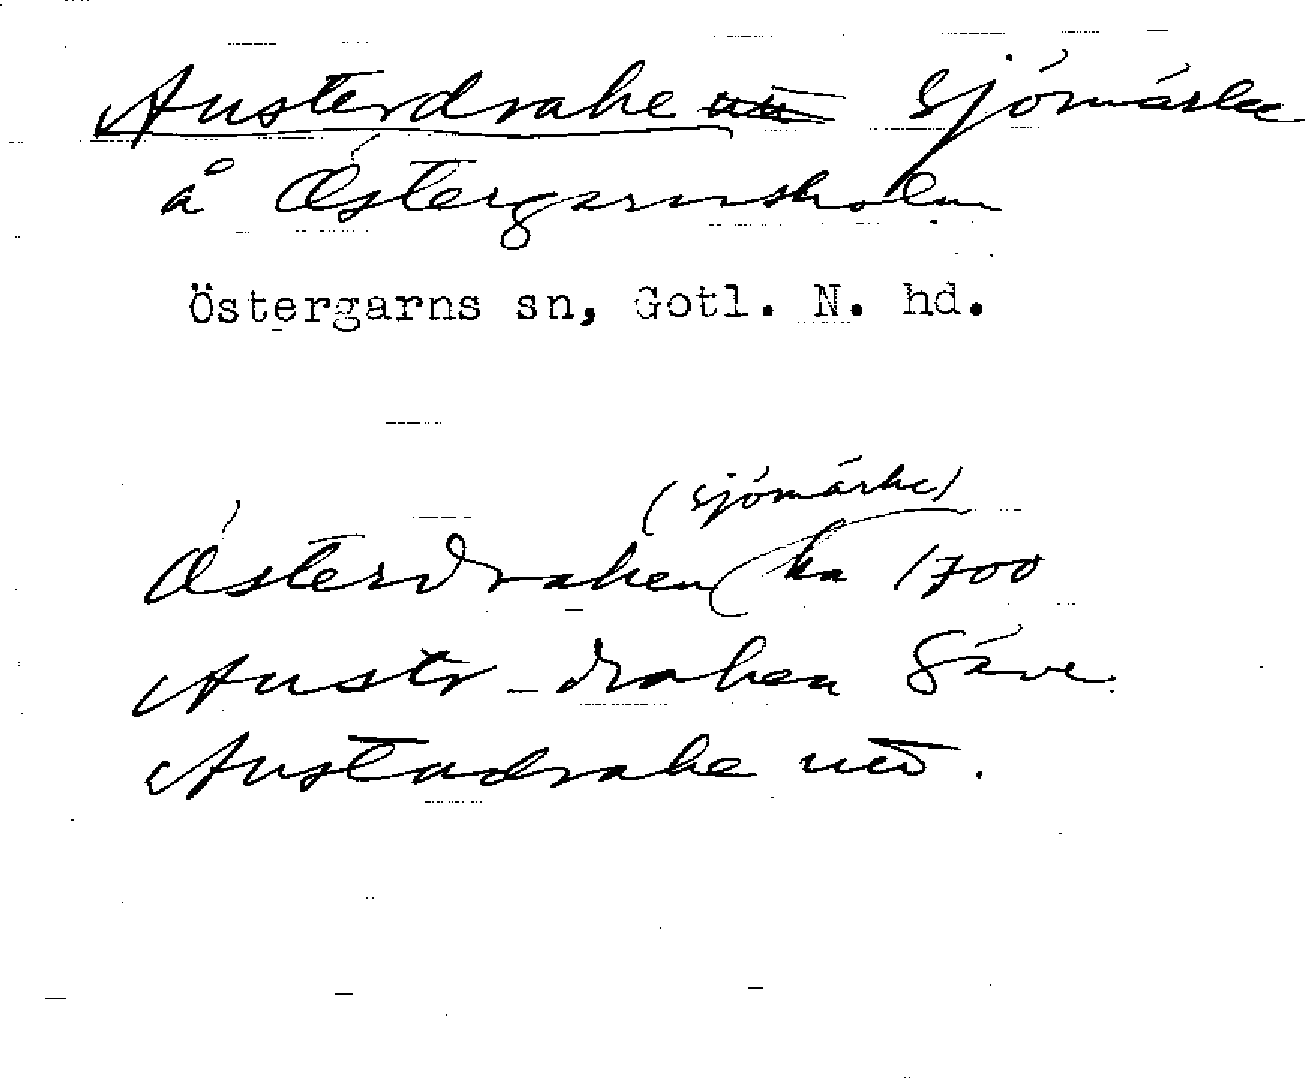 Austerdrake sjömärke
å Östergarnsholm
Östergarns sn, Gotl. N. hd.
(sjömärke)
Österdraken ka 1700
Austr-draken Säve
Austadrake